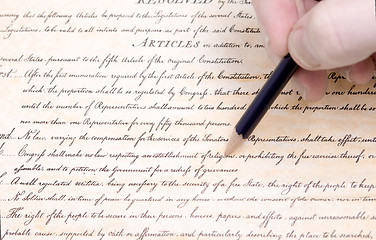 RESOLVED by the
ing that the following Articles be proposed to the Legislatures of the several States
Legislatures, to be valid to all intents and purposes as part of the said Constitution
ARTICLES in addition to, an
several States, pursuant to the fifth Article of the original Constitution.
After the first enumeration required by the first Article of the Constitution, th
which, the proportion shall be so regulated by Congress, that there sh not be
until the number of Representatives shall amount to two hundred which the proportion shall be so
nor more than one Representative for every fifty thousand persons.
No law, varying the compensation for the services of the Senators Representatives, shall take effect, unti
Congress shall make no law respecting an establishment of religion, or prohibiting the free exercise thereof; or ab
assemble, and to petition the Government for a redress of grievances
A well regulated militia, being necessary to the security of a free State, the right of the people to keep
No Soldier shall, in time of peace be quartered in any house, without the consent of the owner, nor in time
The right of the people to be secure in their persons, houses, papers, and effects, against unreasonable se
probable cause, supported by oath or affirmation, and particularly describing the place to be searched,